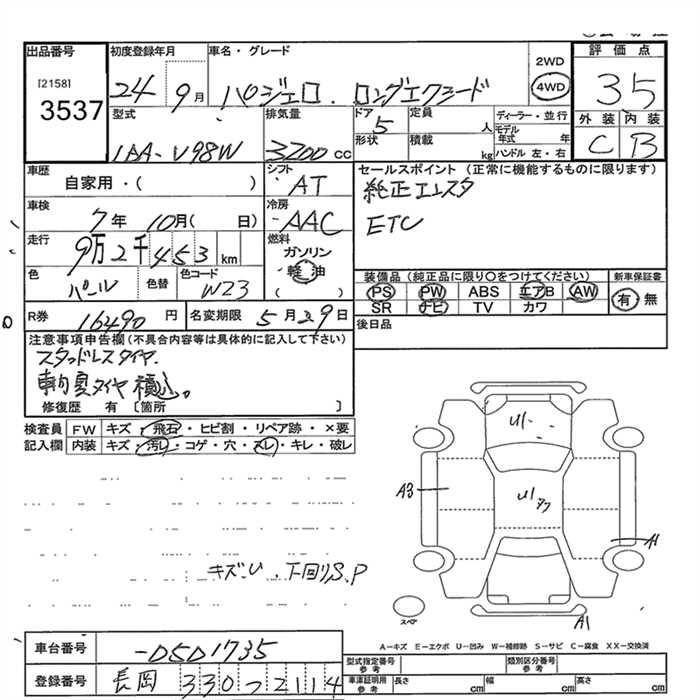 出品番号
[2158]
3537
初度登録年月
24 9月
車名・グレード
パジェロ. ロングエクシード
2WD
4WD
評価点
35
外装 内装
C B
型式
LBA-V98W
排気量
3200cc
ドア
5
形状
定員
人
積載
kg
ディーラー・並行
モデル年式 年
ハンドル 左・右
車歴
自家用・( )
シフト
AT
セールスポイント(正常に機能するものに限ります)
純正エムスタ
ETC
車検
7年 10月( 日)
冷房
AAC
走行
9万2千453km
燃料
ガソリン
軽油
( )
色
パール
色替
色コード
W23
装備品(純正品に限り〇をつけてください)
PS PW ABS エアB AW
SR ナビ TV カワ
新車保証書
有 無
R券
16490円
名変期限
5月29日
後日品
注意事項申告欄(不具合内容等は具体的に記入して下さい)
スタッドレスタイヤ.
車内夏タイヤ積込。
修復歴 有〔箇所 〕
検査員記入欄
FW キズ・飛石・ヒビ割・リペア跡・×要
内装 キズ・汚レ・コゲ・穴・スレ・キレ・破レ
キズ.U. 下回りS.P
U1
U1
A3
A1
A1
スペア
A-キズ E-エクボ U-凹み W-補修跡 S-サビ C-腐食 XX-交換済
車台番号
-DSD1735
登録番号
長岡 330 つ 2114
型式指定番号 参考
類別区分番号 参考
車庫証明用 参考
長さ cm
幅 cm
高さ cm